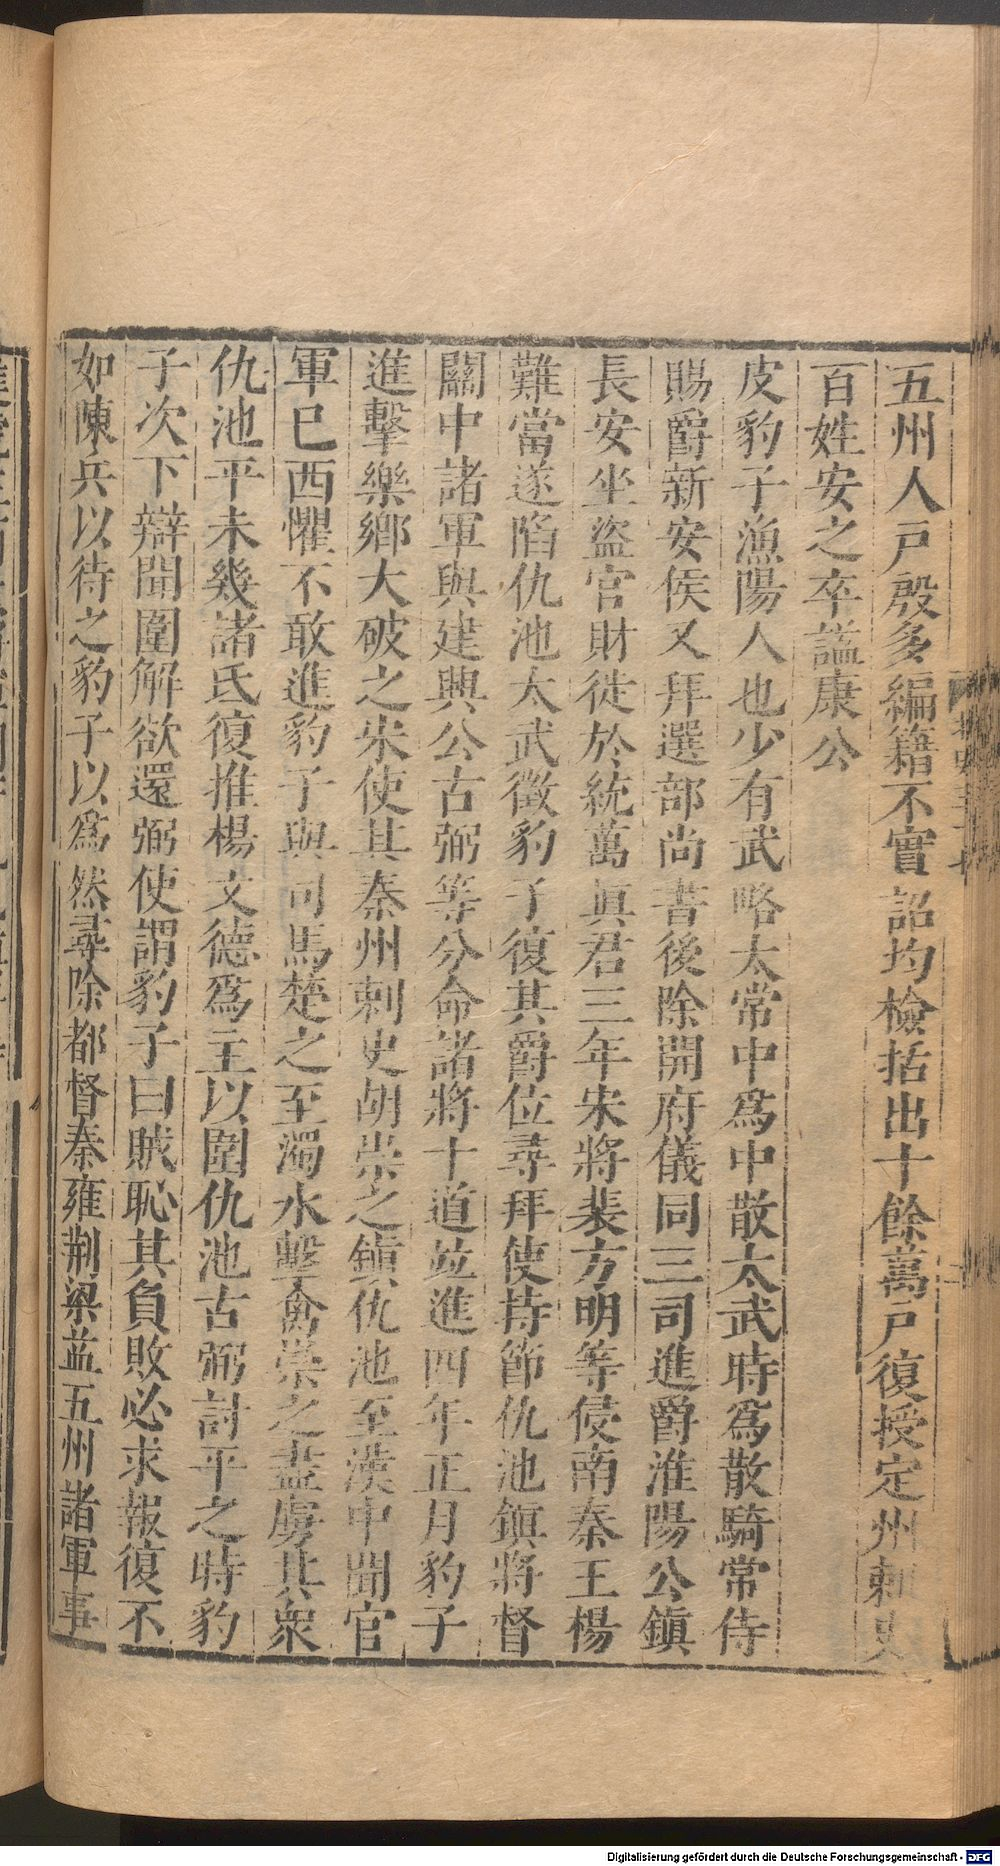 五州人戸殷多編籍不實詔均檢括出十餘萬戸復授定州刺史
百姓安之卒謚康公
皮豹子漁陽人也少有武略太常中爲中散太武時爲散騎常侍
賜爵新安侯又拜選部尚書後除開府儀同三司進爵淮陽公鎮
長安坐盜官財徙於統萬眞君三年宋將裴方明等侵南秦王楊
難當遂陷仇池太武徵豹子復其爵位尋拜使持節仇池鎮將督
關中諸軍與建興公古弼等分命諸將十道並進四年正月豹子
進擊樂鄉大破之宋使其秦州刺史胡崇之鎮仇池至漢中聞官
軍已西懼不敢進豹子與司馬楚之至濁水擊禽崇之盡虜其衆
仇池平未幾諸氐復推楊文德爲主以圍仇池古弼討平之時豹
子次下辯聞圍解欲還弼使謂豹子曰賊恥其負敗必求報復不
如陳兵以待之豹子以爲然尋除都督秦雍荆梁益五州諸軍事
Digitalisierung gefördert durch die Deutsche Forschungsgemeinschaft - DFG